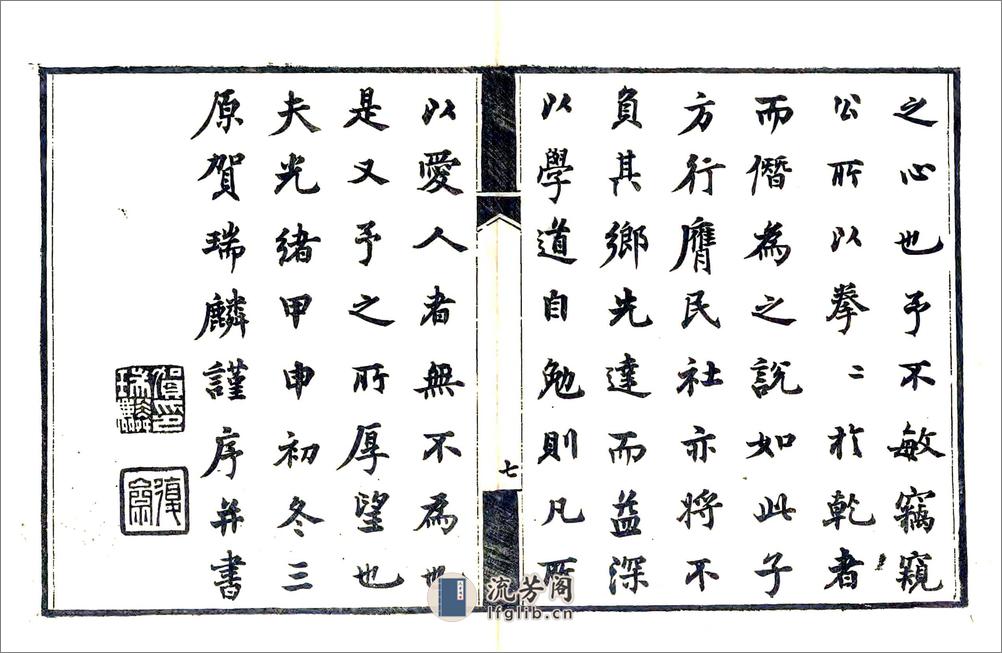 之心也予不敏竊窺
公所以拳〻於乾者
而僭為之說如此子
方行膺民社亦將不
負其鄉先達而益深
以學道自勉則凡所
七
以愛人者無不為也
是又予之所厚望也
夫光緒甲申初冬三
原賀瑞麟謹序并書
賀印瑞麟
復齋
流芳阁
lfglib.cn